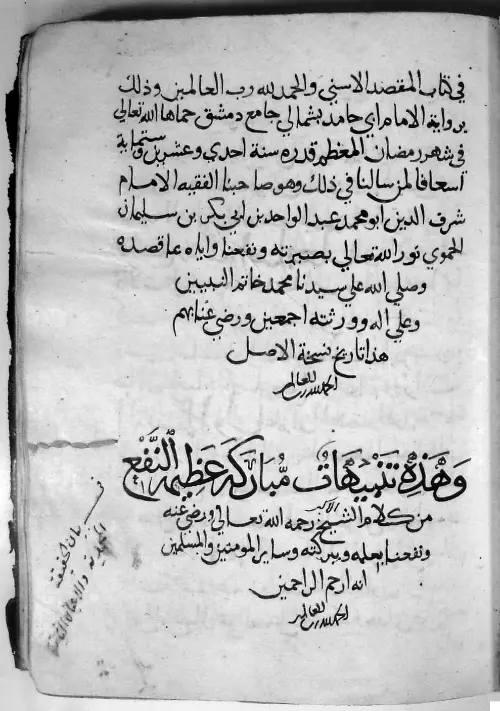 في كتاب المقصد الاسنى والحمد لله رب العالمين وذلك
برواية الامام ابي حامد بشمالي جامع دمشق حماها الله تعالى
في شهر رمضان المعظم قدره سنة احدي وعشرين وستماية
اسعافا لمن سالنا في ذلك وهو صاحبنا الفقيه الامام
شرف الدين ابو محمد عبد الواحد بن ابي بكر بن سليمان
الحموي نور الله تعالي بصيرته ونفعنا واياه بما قصده
وصلي الله علي سيدنا محمد خاتم النبيين
وعلي اله وورثته اجمعين ورضي عنا بهم
هذا تاريخ نسخة الاصل
الحمد لله رب العالمين
وَهَذِهِ تَنْبِيهَاتٌ مُبَارَكَة عَظِيمة النَّفْعِ
من كلام الشيخ الاكبر رحمه الله تعالي ورضي عنه
ونفعنا بعلمه وببركته وساير المومنين والمسلمين
انه ارحم الراحمين
الحمد لله رب العالمين